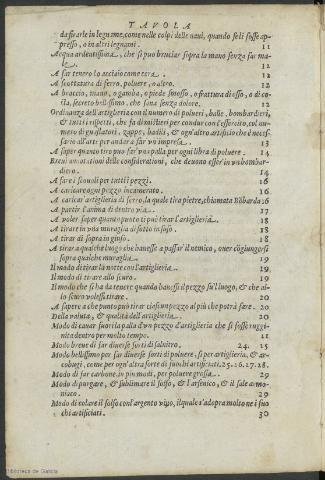 TAVOLA
da ficarle in legname, come nelle colpi delle naui, quando se li fosse ap-
presso, o in altri legnami. 11
Acqua ardentissima, che si può bruciar sopra la mano senza far ma-
le. 12
A far tenero lo acciaio come cera. 12
A scottatura di ferro, poluere, o altro. 12
A braccio, mano, o gamba, o piede smosso, o frattura d'osso, o di co
sta, secreto bellissimo, che sana senza dolore. 12
Ordinanza dell'artigliería con il numero di polueri, balle, bombardieri,
& tutti i rispetti, che fa di mistieri per condur con l'essercito, col nu-
mero di guastatori, zappe, badili, & ogn'altro artificio che è neces-
sario all'arte per andar a far vn impresa. 13
A saper quanto tiro può far vna palla per ogni libra di poluere. 14
Breui annotationi delle considerationi, che deuono esser in vn bombar-
diero. 14
A fare i scouoli per tutti i pezzi. 16
A caricare ogni pezzo incamerato. 16
A caricar artiglieria di ferro, la quale tira pietre, chiamata Bōbarda 16
A partir l'anima di dentro via. 17
A voler saper quanto punto ti può tirar l'artiglieria. 18
A tirare in vna muraglia di sotto in suso. 18
A tirar di sopra in giuso. 18
A tirar a qual luogo che hauesse a passar il nemico, ouer cōgiungersi
sopra qualche muraglia. 19
Il modo di tirar la notte con l'artiglieria. 19
Il modo di tirare allo scuro. 19
Il modo che si ha da tenere quando hauesi il pezzo sù'l luogo, & che al-
lo scuro volessi tirare. 20
A sapere a che punto può tirar ciascun pezzo al più che potrà fare. 20
Della valuta, & qualità dell'artiglieria. 20
Modo di cauar fuori la palla d'vn pezzo d'artiglieria che si fosse ruggi-
nita dentro per molto tempo. 21
Modo breue di far diuerse sorti di salnitro. 24. 25
Modo bellissimo per far diuerse sorti di poluere, sì per artiglieria, & ar-
cobugi, come per ogn'altra sorte di fuochi artificiati. 25. 26. 27. 28.
Modo di far carbone in più modi, per poluere grossa. 29
Modo di purgare, & sublimare il solfo, & l'arsenico, & il sale armo-
niaco. 29
Modo di colare il solfo con l'argento viuo, il quale s'adopra molto ne i fuo
chi artificiati. 30
Biblioteca de Galicia